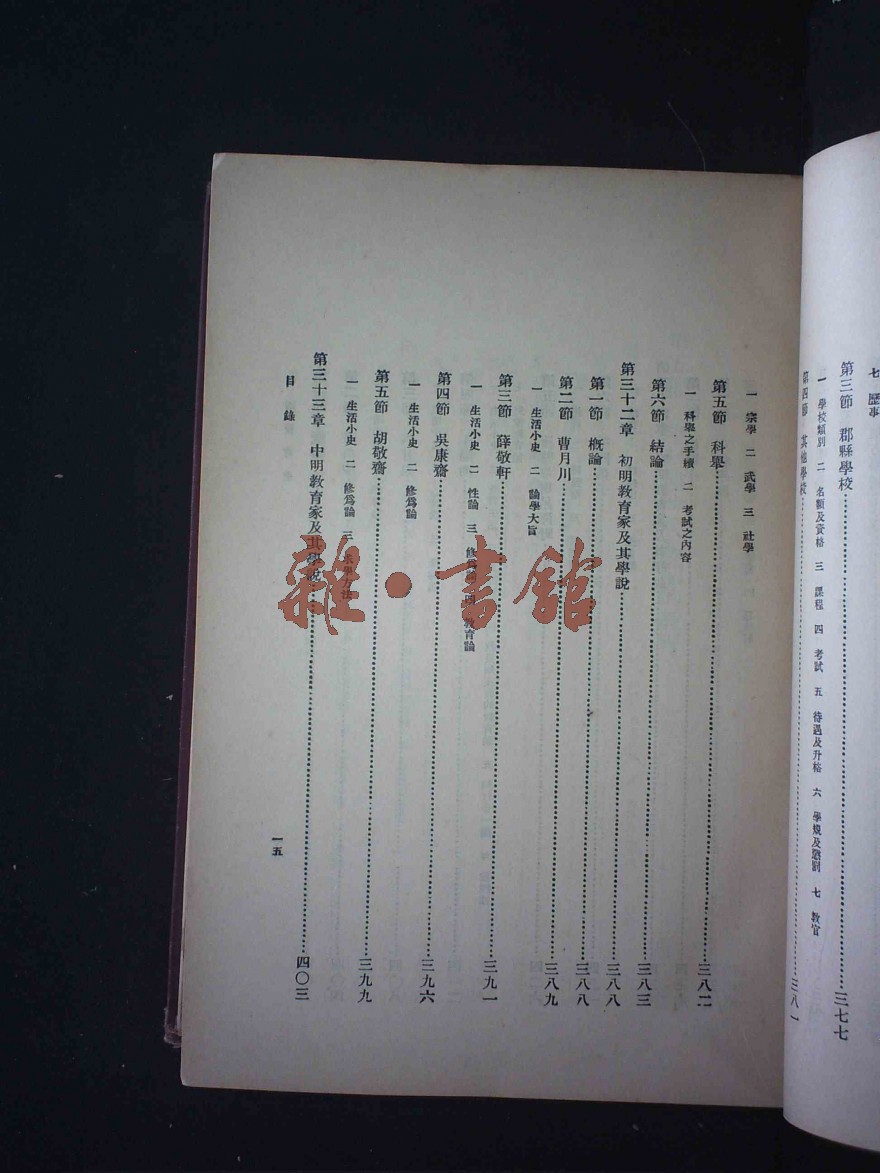 七 歷事
第三節 郡縣學校……三七七
一 學校類別 二 名額及資格 三 課程 四 考試 五 待遇及升格 六 學規及 七 教官
第四節 其他學校……三八一
一 宗學 二 武學 三 社學
第五節 科舉……三八二
一 科舉之手續 二 考試之內容
第六節 結論……三八三
第三十二章 初明教育家及其學說……三八八
第一節 概論……三八八
第二節 曹月川……三八九
一 生活小史 二 論學大旨
第三節 薛敬軒……三九一
一 生活小史 二 性論 三 修爲論 四 教育論
第四節 吳康齋……三九六
一 生活小史 二 修爲論
第五節 胡敬齋……三九九
一 生活小史 二 修爲論 三
第三十三章 中明教育家及其學說……四〇三
目錄
一五
雜·書館